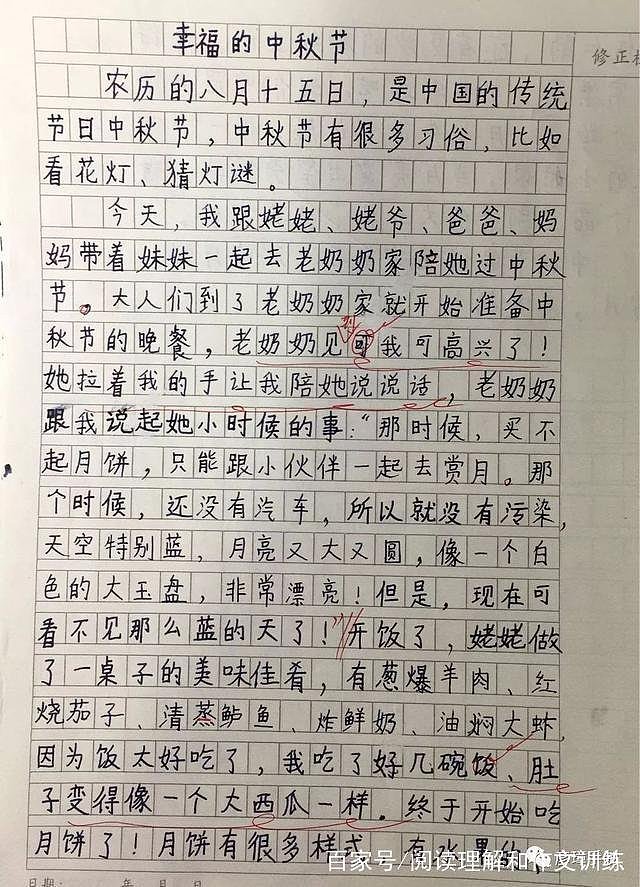 幸福的中秋节
修正
农历的八月十五日，是中国的传统
节日中秋节，中秋节有很多习俗、比如
看花灯、猜灯谜。
今天，我跟姥姥、姥爷、爸爸、妈
妈带着妹妹一起去老奶奶家陪她过中秋
节。大人们到了老奶奶家就开始准备中
秋节的晚餐，老奶奶见到我可高兴了！
她拉着我的手让我陪她说说话，老奶奶
跟我说起她小时候的事：“那时候，买不
起月饼，只能跟小伙伴一起去赏月。那
个时候，还没有汽车，所以就没有污染，
天空特别蓝，月亮又大又圆，像一个白
色的大玉盘，非常漂亮！但是，现在可
看不见那么蓝的天了！”开饭了，姥姥做
了一桌子的美味佳肴，有葱爆羊肉、红
烧茄子、清蒸鲈鱼、炸鲜奶、油焖大虾，
因为饭太好吃了，我吃了好几碗饭、肚
子变得像一个大西瓜一样。终于开始吃
月饼了！月饼有很多样式，有水果的、
百家号/阅读理解和作文训练
日期： 年 月 日